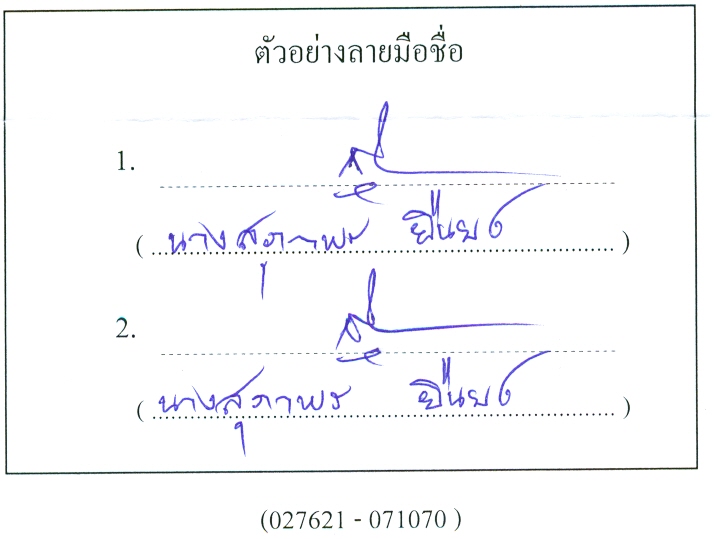 ตัวอย่างลายมือชื่อ
1.
( นางสุภาพร ยืนยง )
2.
( นางสุภาพร ยืนยง )
(027621 - 071070 )